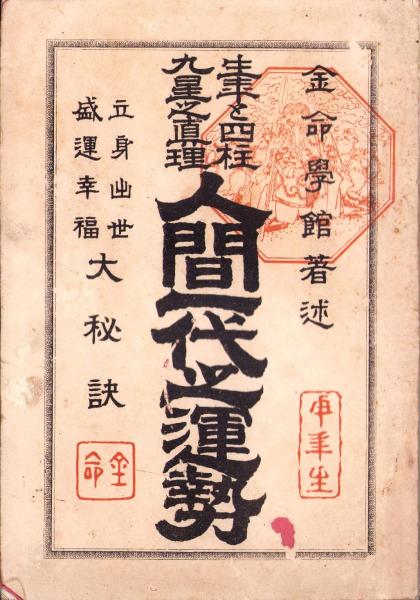 金命學館著述
生年と四柱
九星之眞理
人間一代之運勢
立身出世
盛運幸福
大秘訣
年生
金命